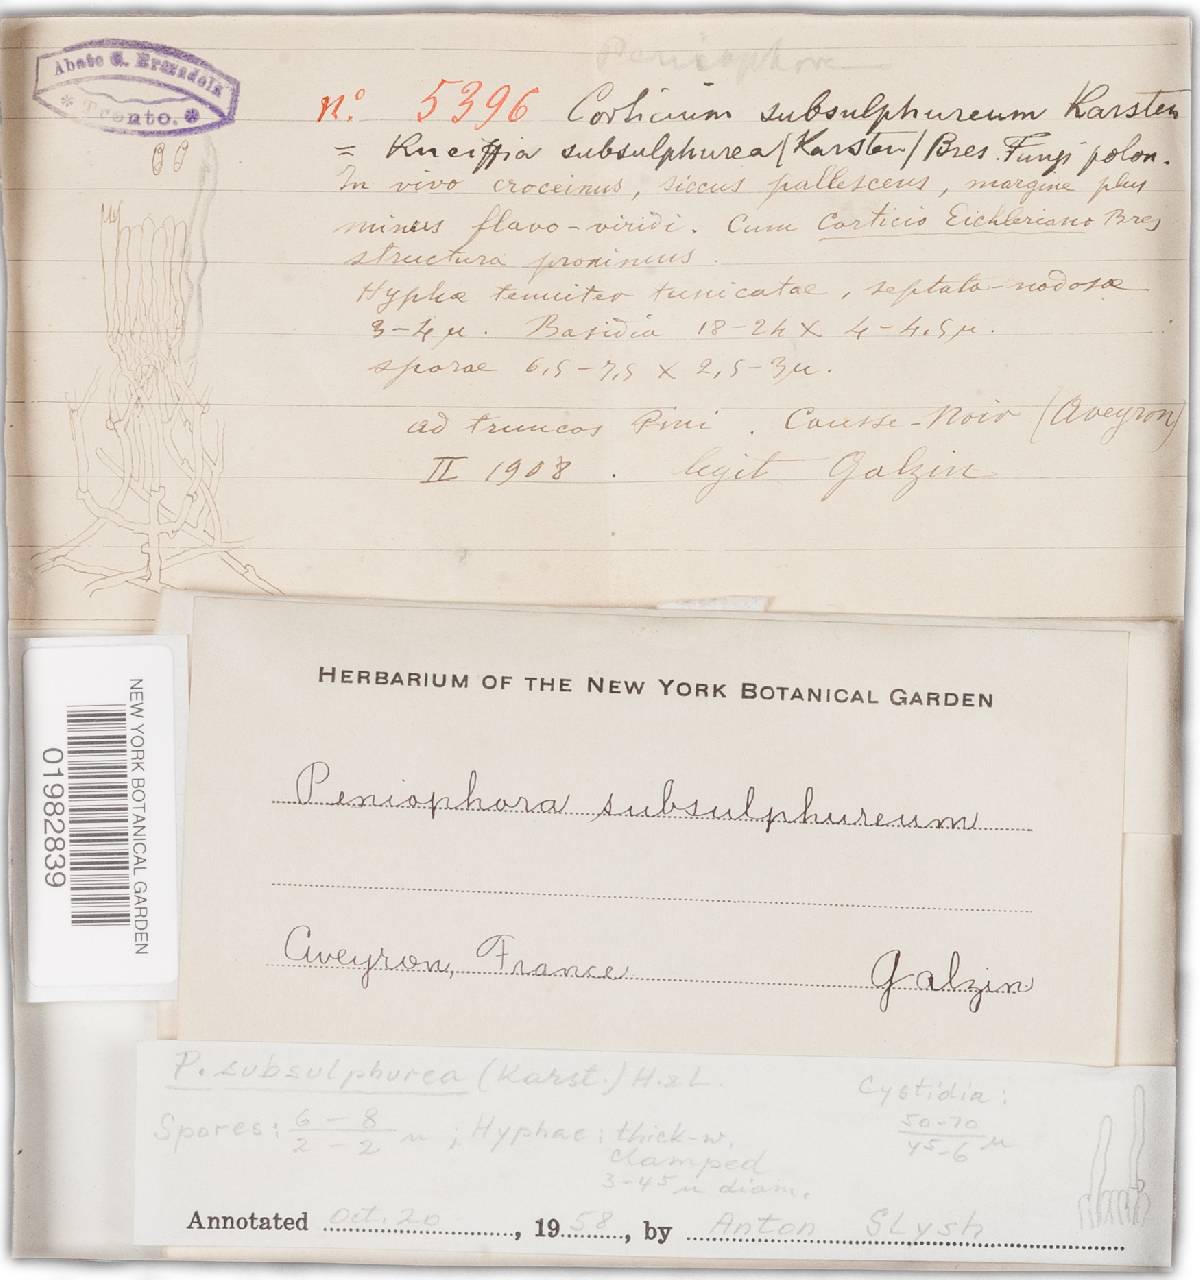 Peniophora
Abate G. Bresadola
* Trento. *
No. 5396 Corticium subsulphureum Karsten
= Kneiffia subsulphurea (Karsten) Bres. Fungi polon.
In vivo croceinus, siccus pallescens, margine plus
minus flavo-viridi. Cum Corticio Eichleriano Bres,
structura proximus.
Hyphae tenuiter tunicatae, septato-nodosae
3-4 µ. Basidia 18-24 x 4-4,5 µ.
sporae 6,5-7,5 x 2,5-3 µ.
ad truncos Pini. Causse-Noir (Aveyron)
II 1908. legit Galzin
HERBARIUM OF THE NEW YORK BOTANICAL GARDEN
Peniophora subsulphureum
Aveyron, France Galzin
NEW YORK BOTANICAL GARDEN
01982839
P. subsulphurea (Karst.) H. & L.
Cystidia:
50-70
45-6 µ
Spores: 6-8
2-2 µ; Hyphae: thick-w.
clamped
3-45 µ diam.
Annotated Oct. 20, 1958, by Anton Slysh